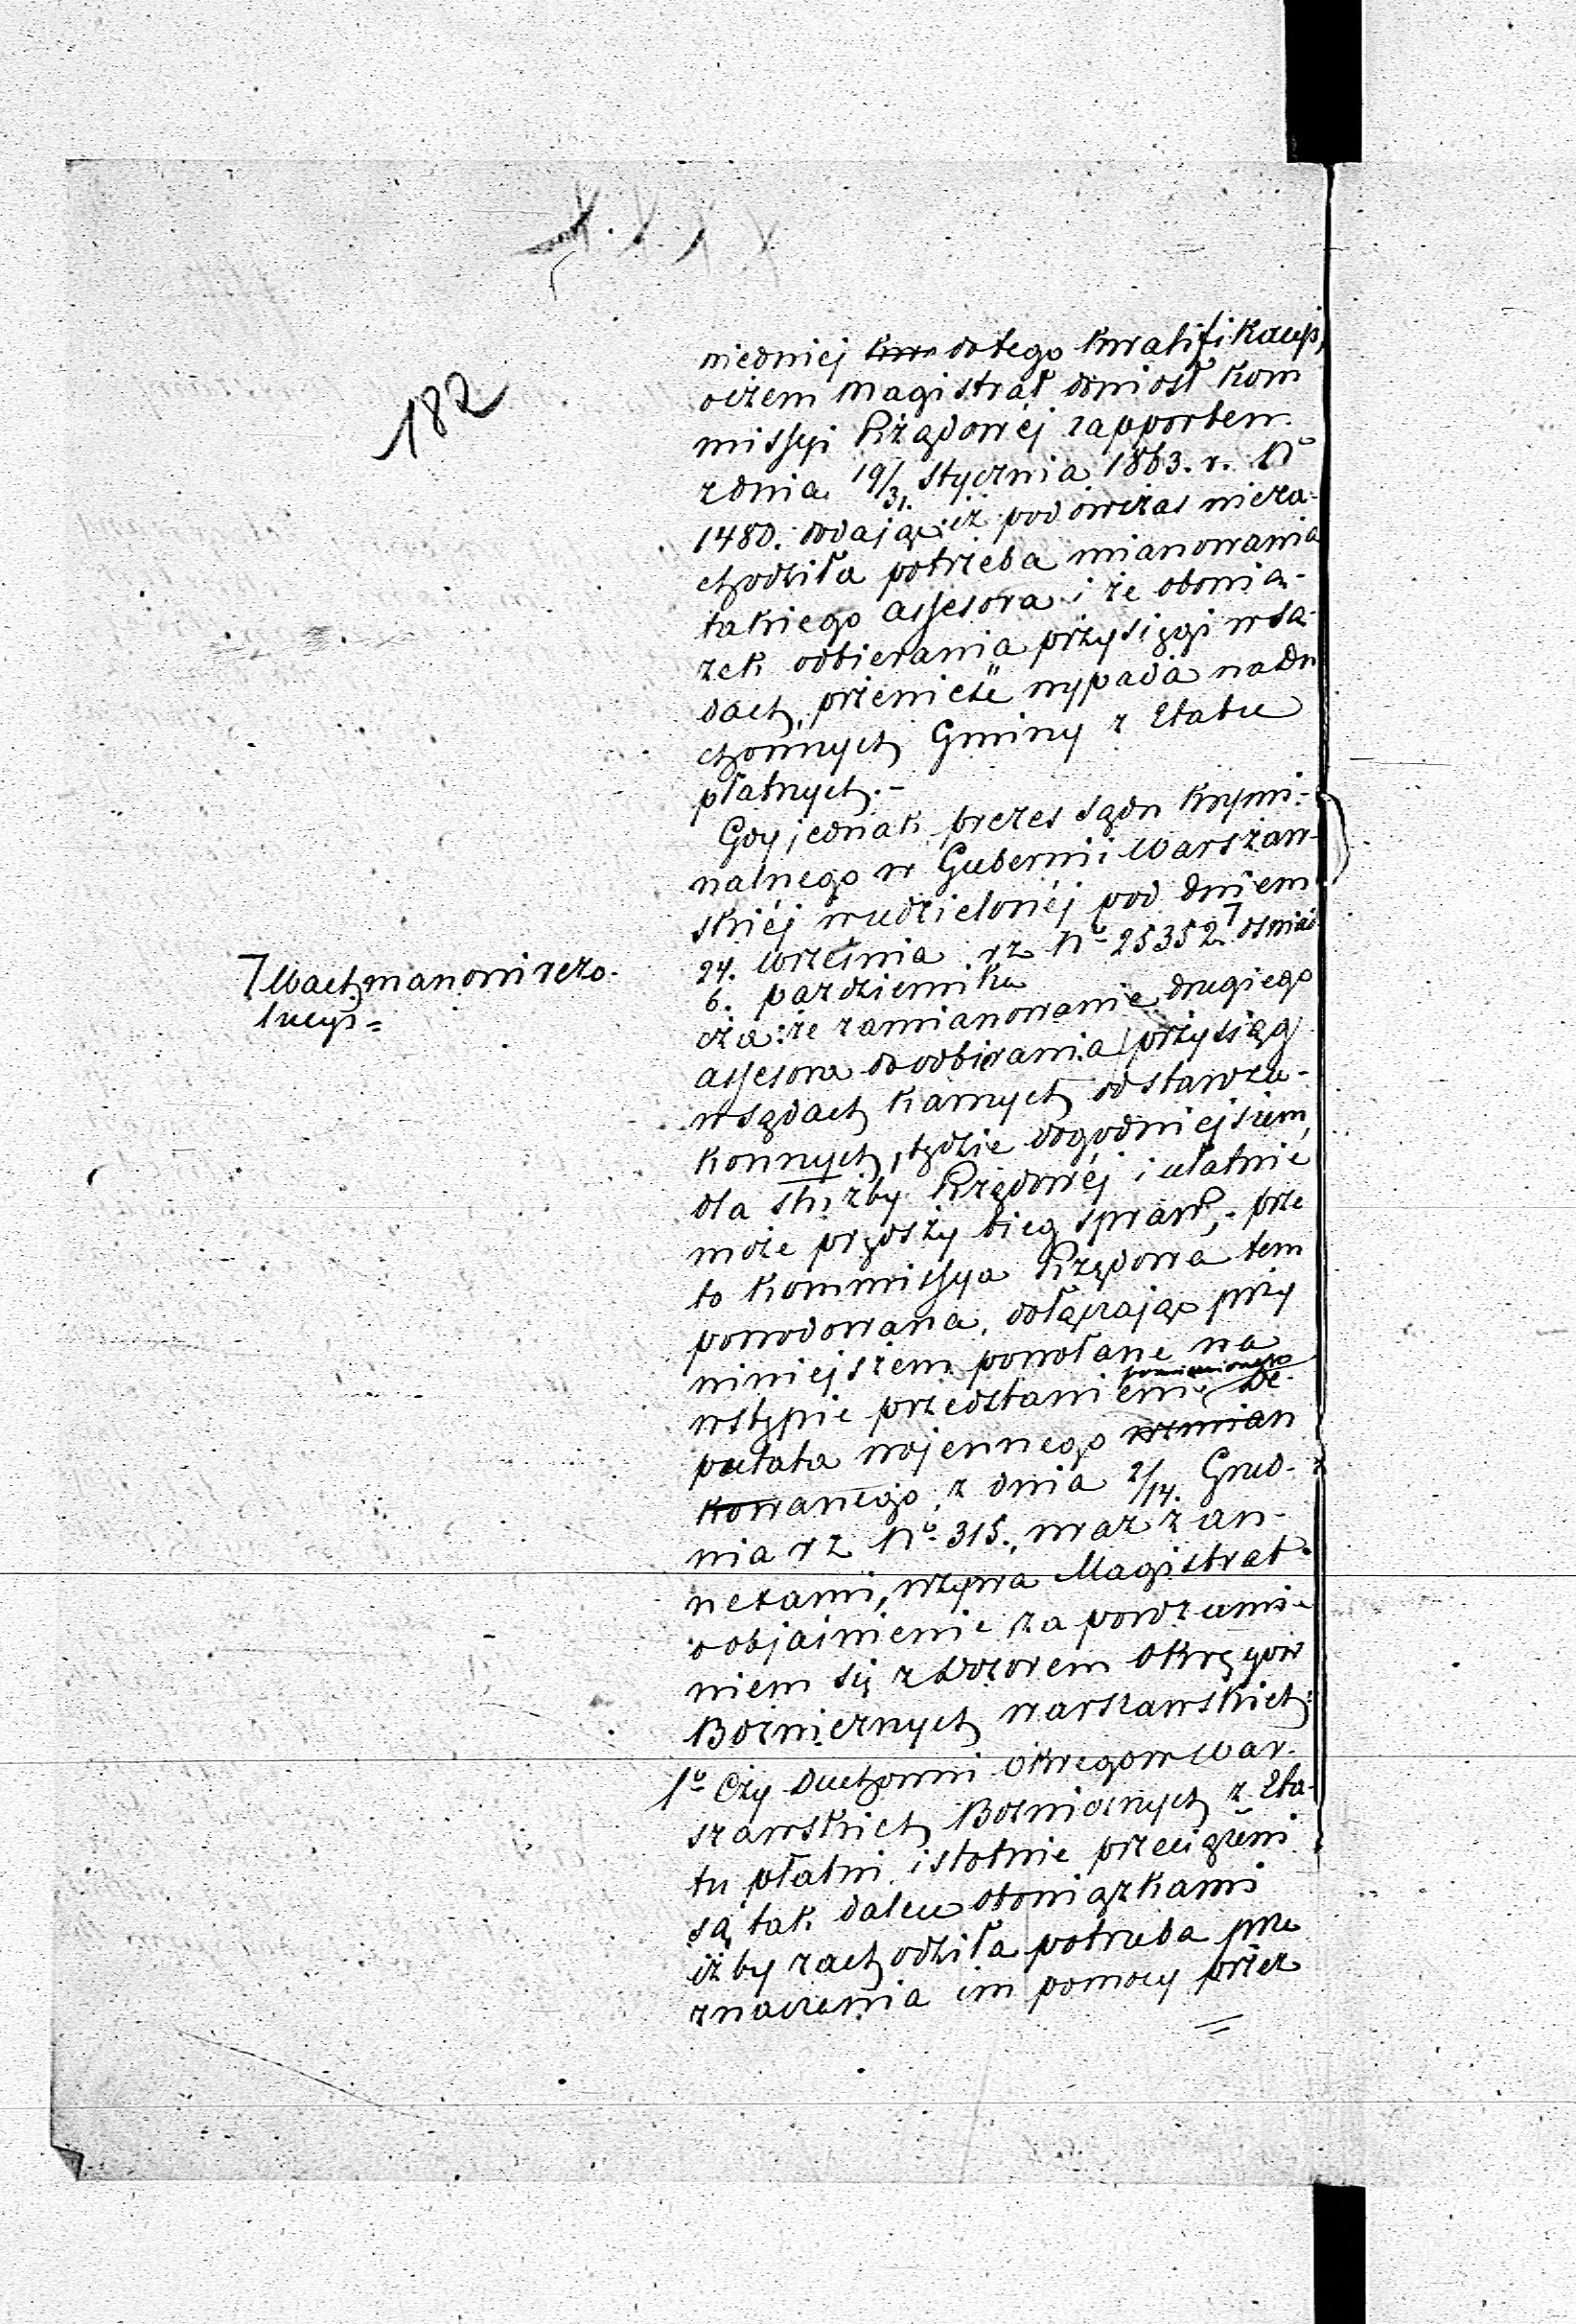 182
niedniej kwa do tego kwalifikacyi,
oczem Magistrat doniosł Kom
missyi Rządowéj rapportem
z dnia 19/31 stycznia 1863. r. No
1480. dodając iż podówczas nieza-
chodziła potrzeba mianowania
takiego assesora i że obowią-
zek odbierania przysięgi w są-
dach, przeniesie wypada na du
chownych Gminy z Etatu
płatnych.-
Gdy jednak prezes sądu krymi-
nalnego w Gubernii Warszaw-
skiéj w udzielonéj pod dniem
24. Września
6. pazdziernika rz No 25352 ⁊ oswiad
⁊ Wachmanowi rezo-
lucyi =
cza: że zamianowanie drugiego
assesora do odbierania przysiąg
w sądach karnych od staroza-
konnych, będzie dogodniejszem,
dla służby Rządowéj i ułatwić
może prędszy bieg spraw, - prze
to Kommissya Rządowa tem
powodowana, dołączając przy
niniejszem powołane na
wstępie przedstawienie pomienionego De-
putata wojennego wzmian
kowanego, z dnia 2/14. Grud-
nia rz No 315., wraz z an-
nexami, wzywa Magistrat
o objaśnienie za porozumie-
niem się z Dozorem Okręgów
Bożnicznych warszawskich:
1o Czy Duchowni Okręgow War-
szawskich Bożnicznych z Eta-
tu płatni, istotnie przeciążeni
są tak dalece obowiązkami
iżby zachodziła potrzeba prze
znaczenia im pomocy przez
=